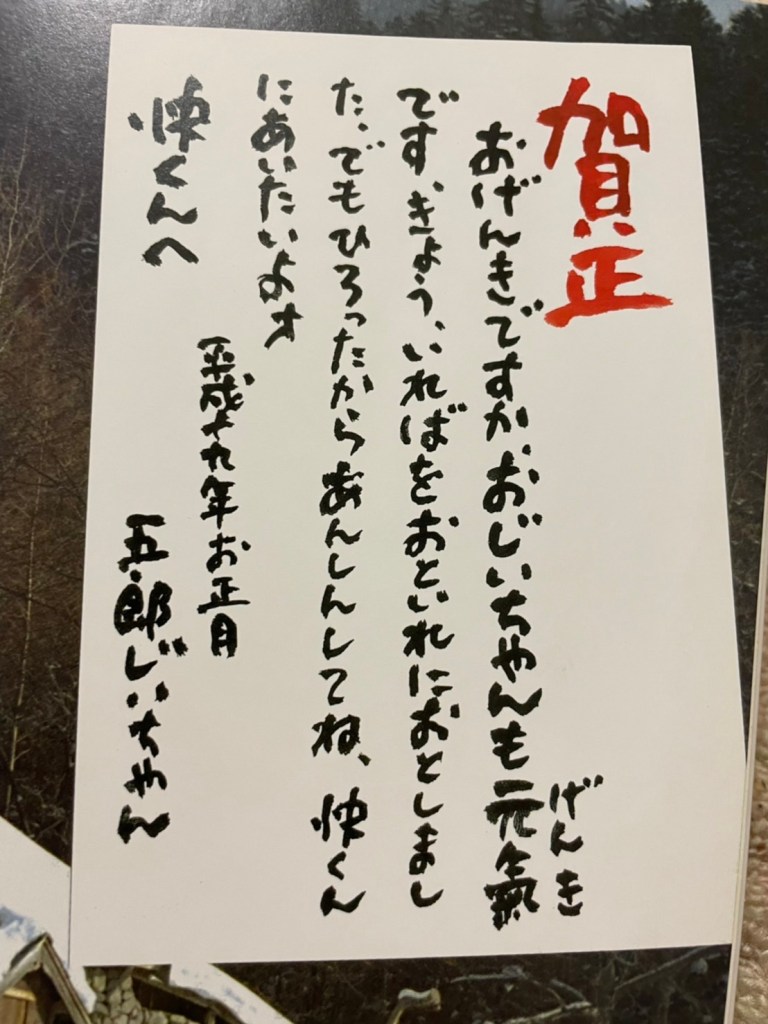 賀正
おげんきですか、おじいちゃんも元氣
げんき
です、きょう、いればをおといれにおとしまし
た、でもひろったからあんしんしてね、快くん
にあいたいよオ
平成十九年お正月
快くんへ
五郎じいちゃん